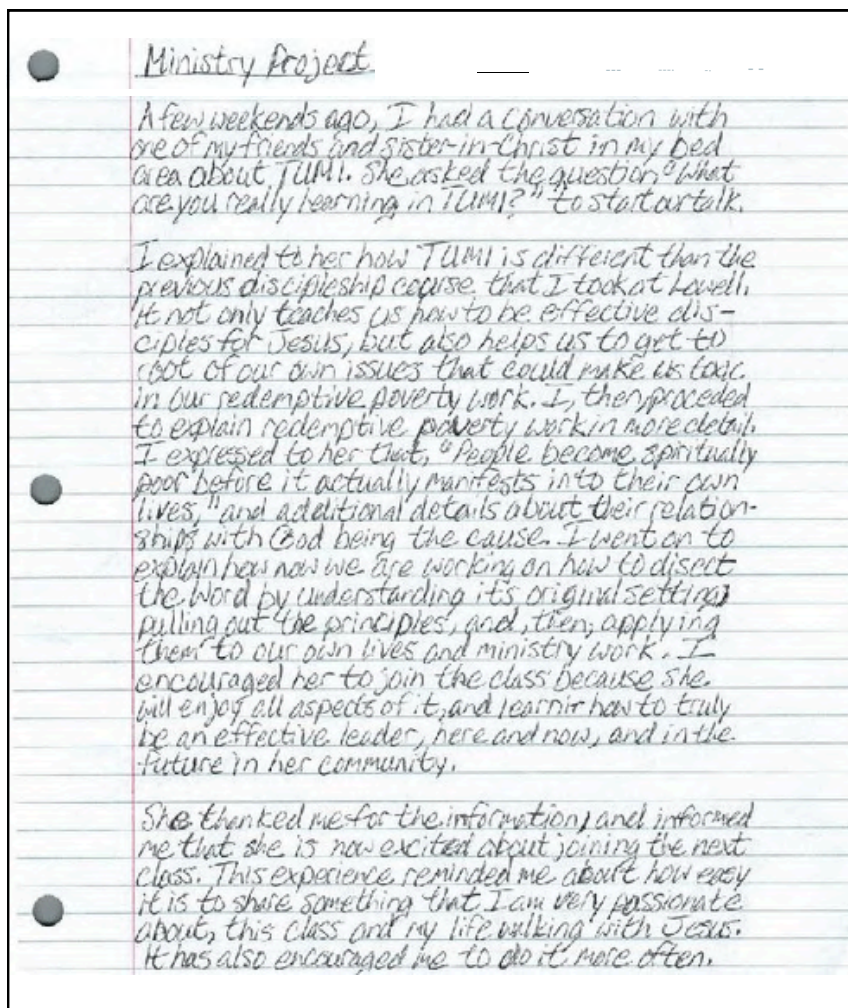 Ministry Project
A few weekends ago, I had a conversation with
one of my friends and sister-in-Christ in my bed
area about TUMI. She asked the question "What
are you really learning in TUMI?" to start our talk.
I explained to her how TUMI is different than the
previous discipleship course that I took at Lowell.
It not only teaches us how to be effective dis-
ciples for Jesus, but also helps us to get to
root of our own issues that could make us toxic
in our redemptive poverty work. I, then, proceded
to explain redemptive poverty work in more detail.
I expressed to her that, "People become spiritually
poor before it actually manifests into their own
lives," and additional details about their relation-
ships with God being the cause. I went on to
explain how now we are working on how to disect
the Word by understanding it's original setting,
pulling out the principles, and, then, applying
them to our own lives and ministry work. I
encouraged her to join the class because she
will enjoy all aspects of it, and how to truly
be an effective leader, here and now, and in the
future in her community.
She thanked me for the information, and informed
me that she is now excited about joining the next
class. This experience reminded me about how easy
it is to share something that I am very passionate
about, this class and my life walking with Jesus.
It has also encouraged me to do it more often.